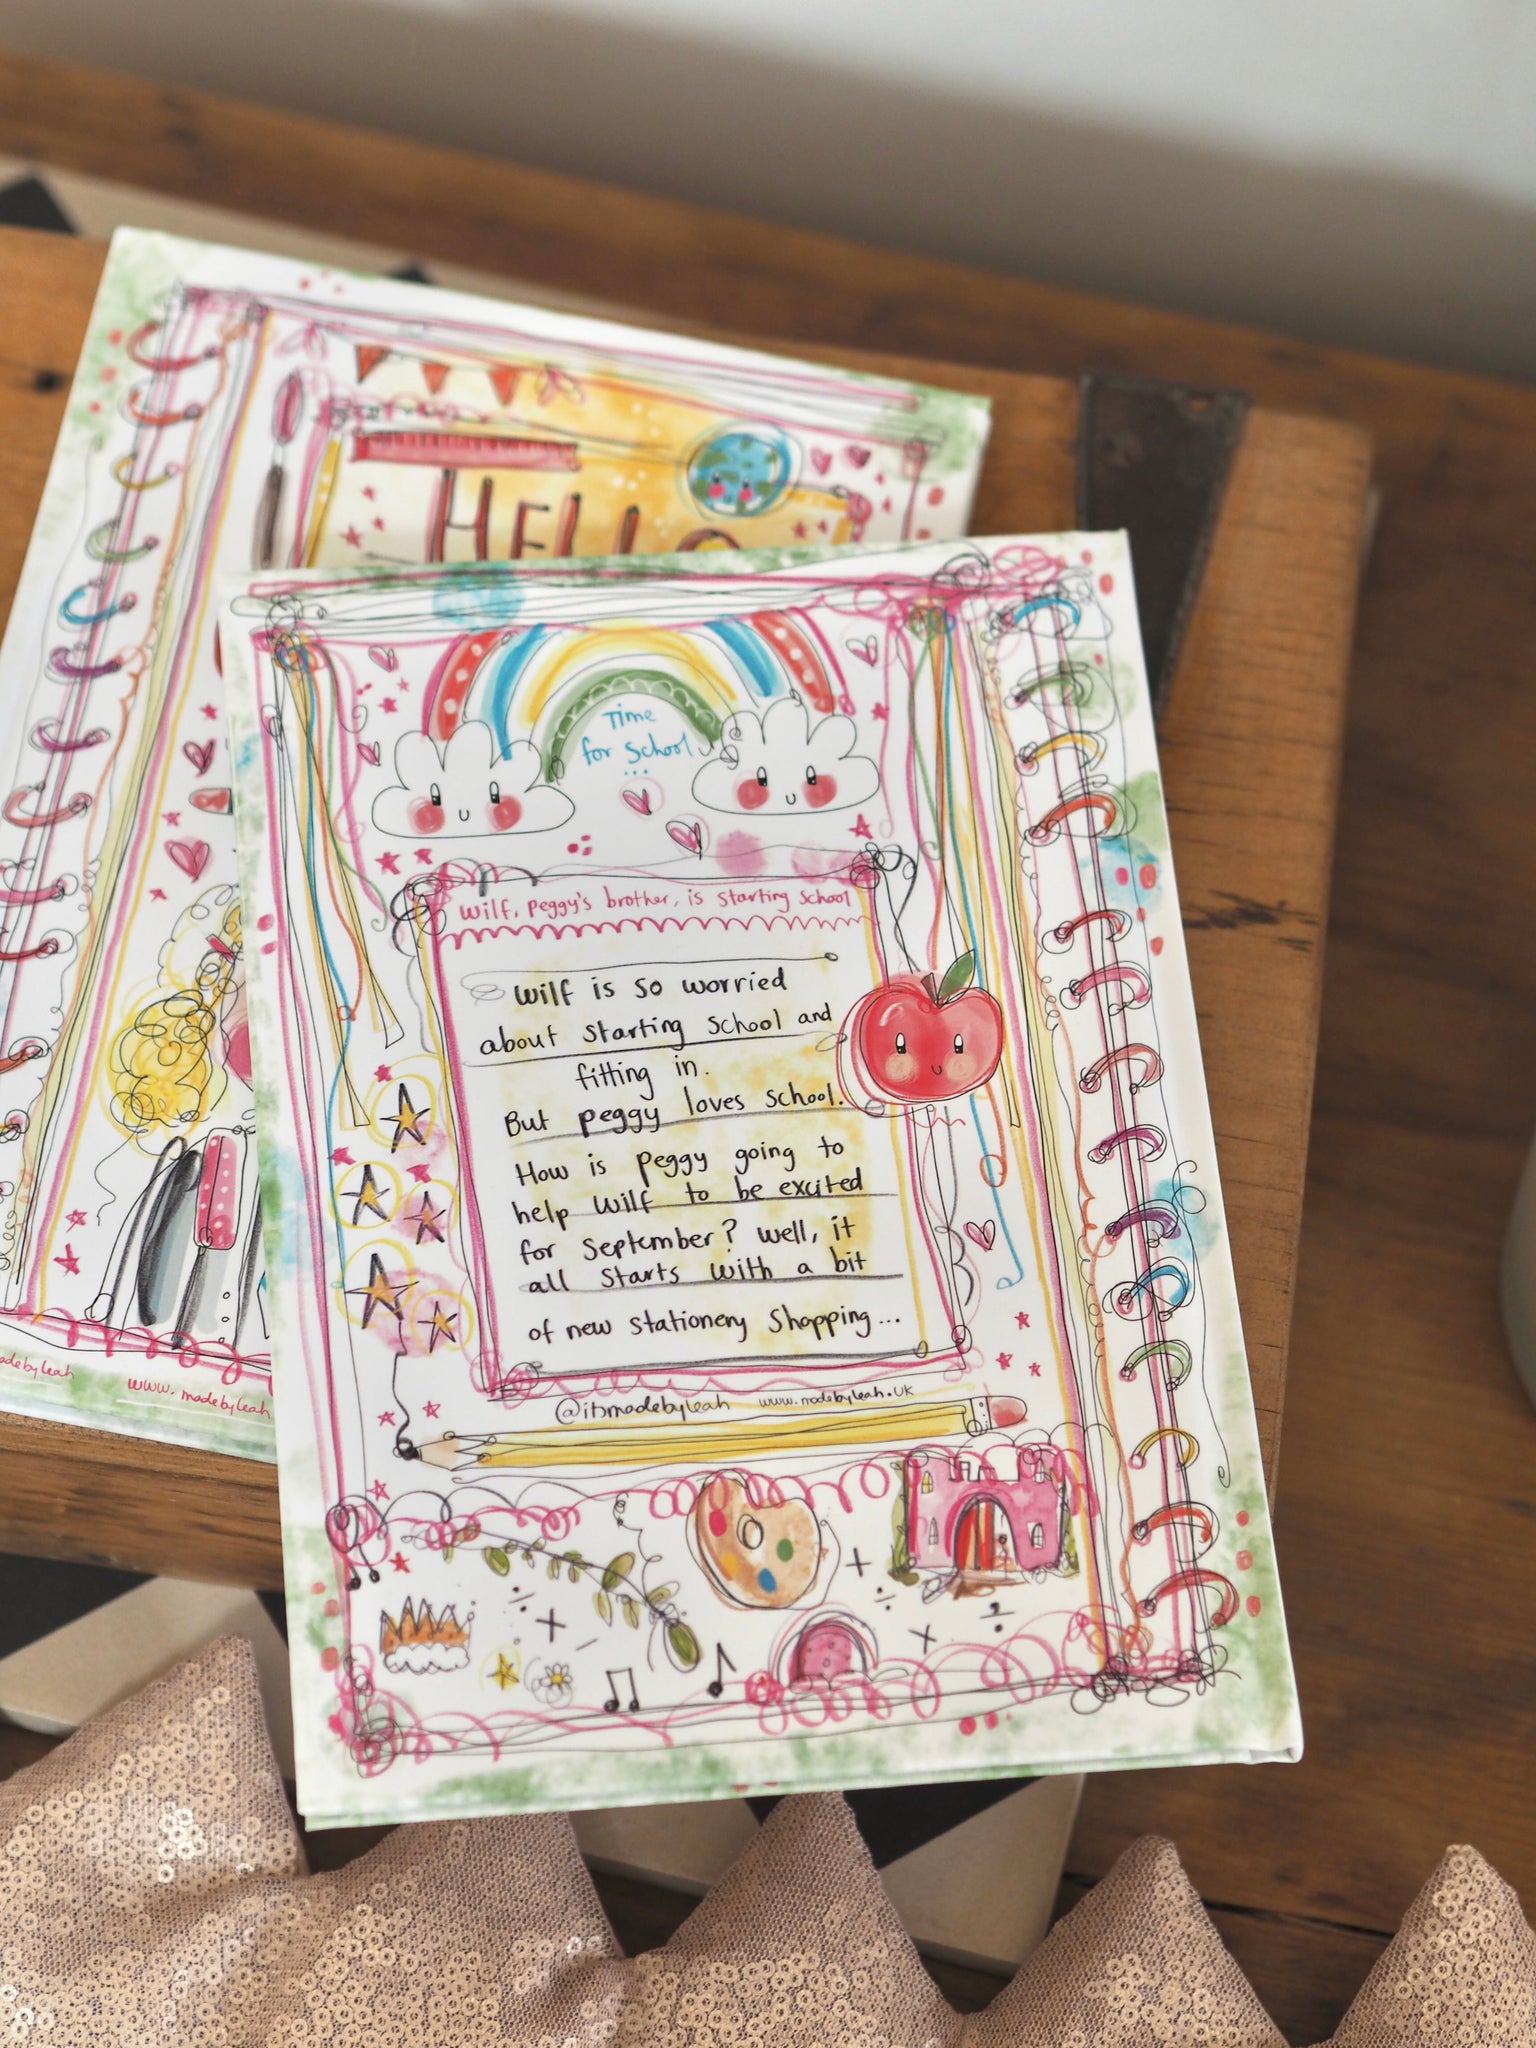 HELLO
Time
for School
...
Wilf, Peggy's brother, is starting School
Wilf is so worried
about starting School and
fitting in.
But Peggy loves School.
How is Peggy going to
help Wilf to be excited
for September? Well, it
all starts with a bit
of new stationery Shopping...
@itsmadebyleah www.madebyleah.uk
adebyleah www.madebyleah